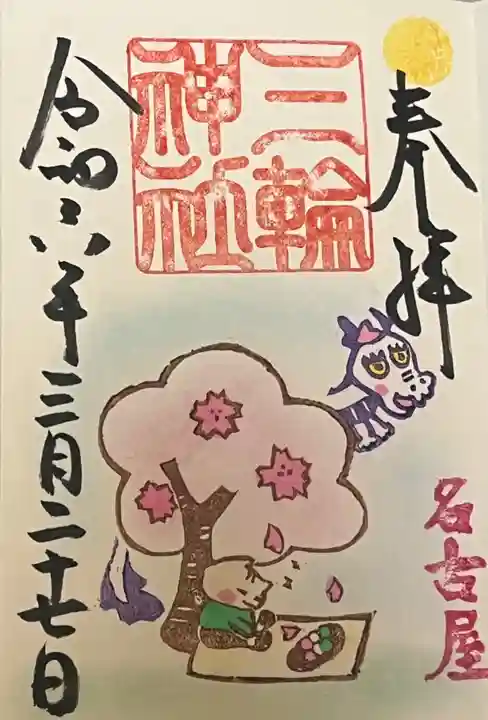 奉拝
三輪
神社
名古屋
令和六年三月二十七日